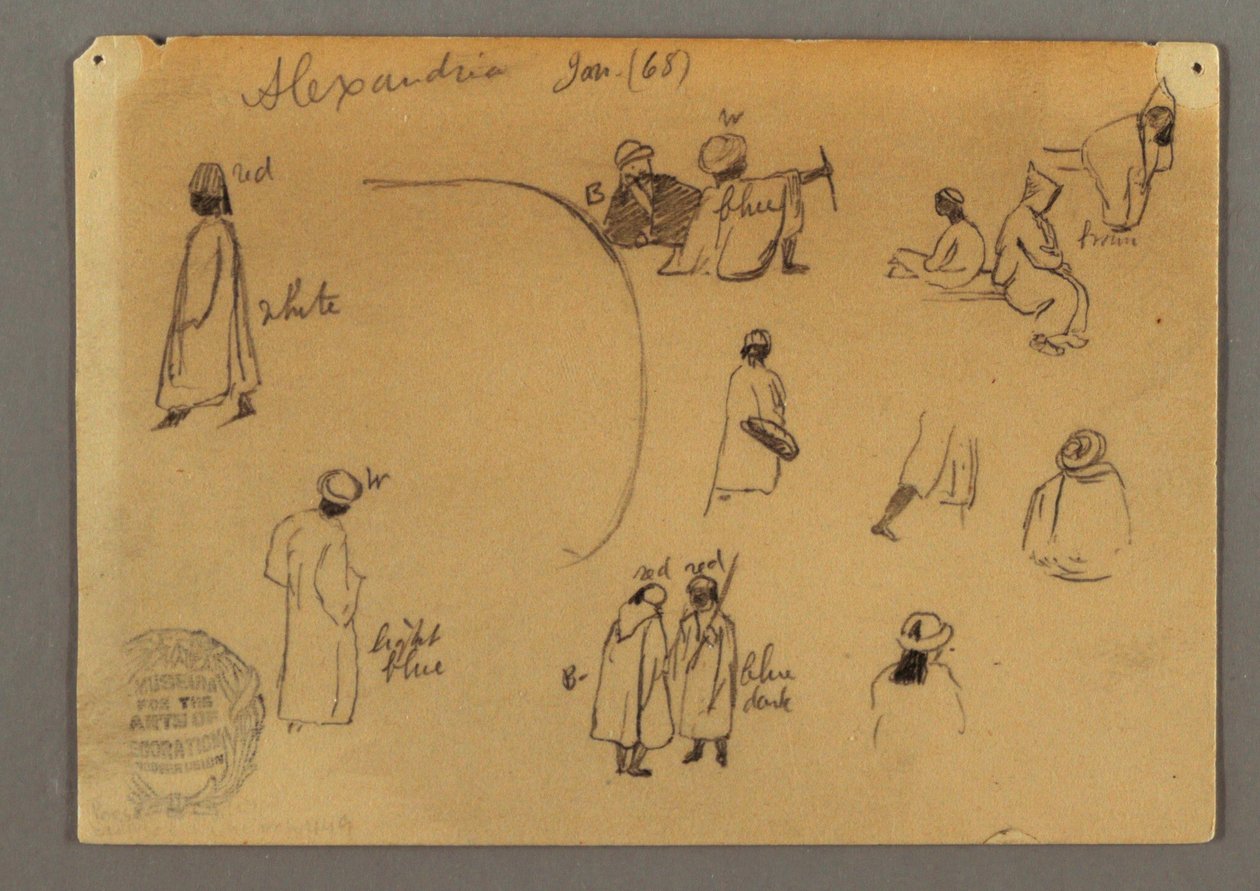 Alexandria Jan. (68)
red
white
B
W
blue
brown
W
light
blue
red red
B-
blue
dark
MUSEUM
FOR THE
ARTS OF